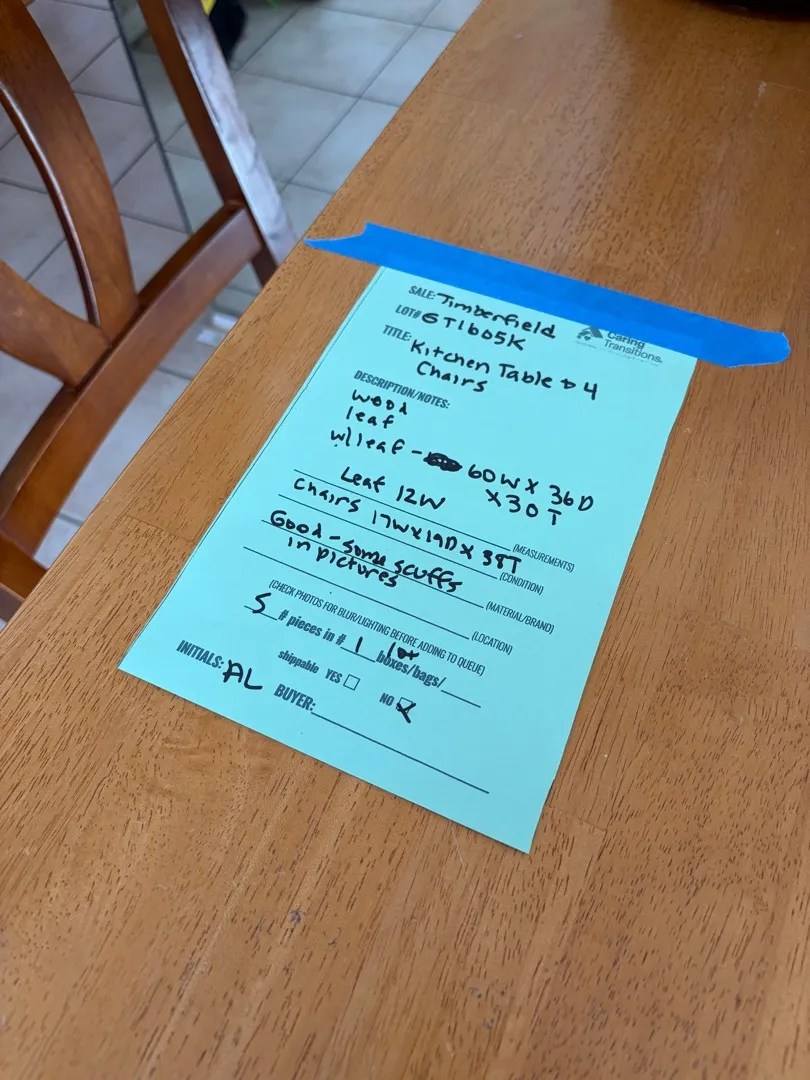 SALE: Timberfield
LOT# GT1605K
Caring
Transitions.
TITLE: Kitchen Table & 4
Chairs
DESCRIPTION/NOTES:
wood
leaf
w/leaf - 60W X 36D
X 30T
Leaf 12W
(MEASUREMENTS)
Chairs 17W X 19D X 38T
(CONDITION)
Good - some scuffs
in pictures
(MATERIAL/BRAND)
(LOCATION)
(CHECK PHOTOS FOR BLUR/LIGHTING BEFORE ADDING TO QUEUE)
5 # pieces in # 1 lot boxes/bags/
shippable YES NO
INITIALS: AL BUYER: